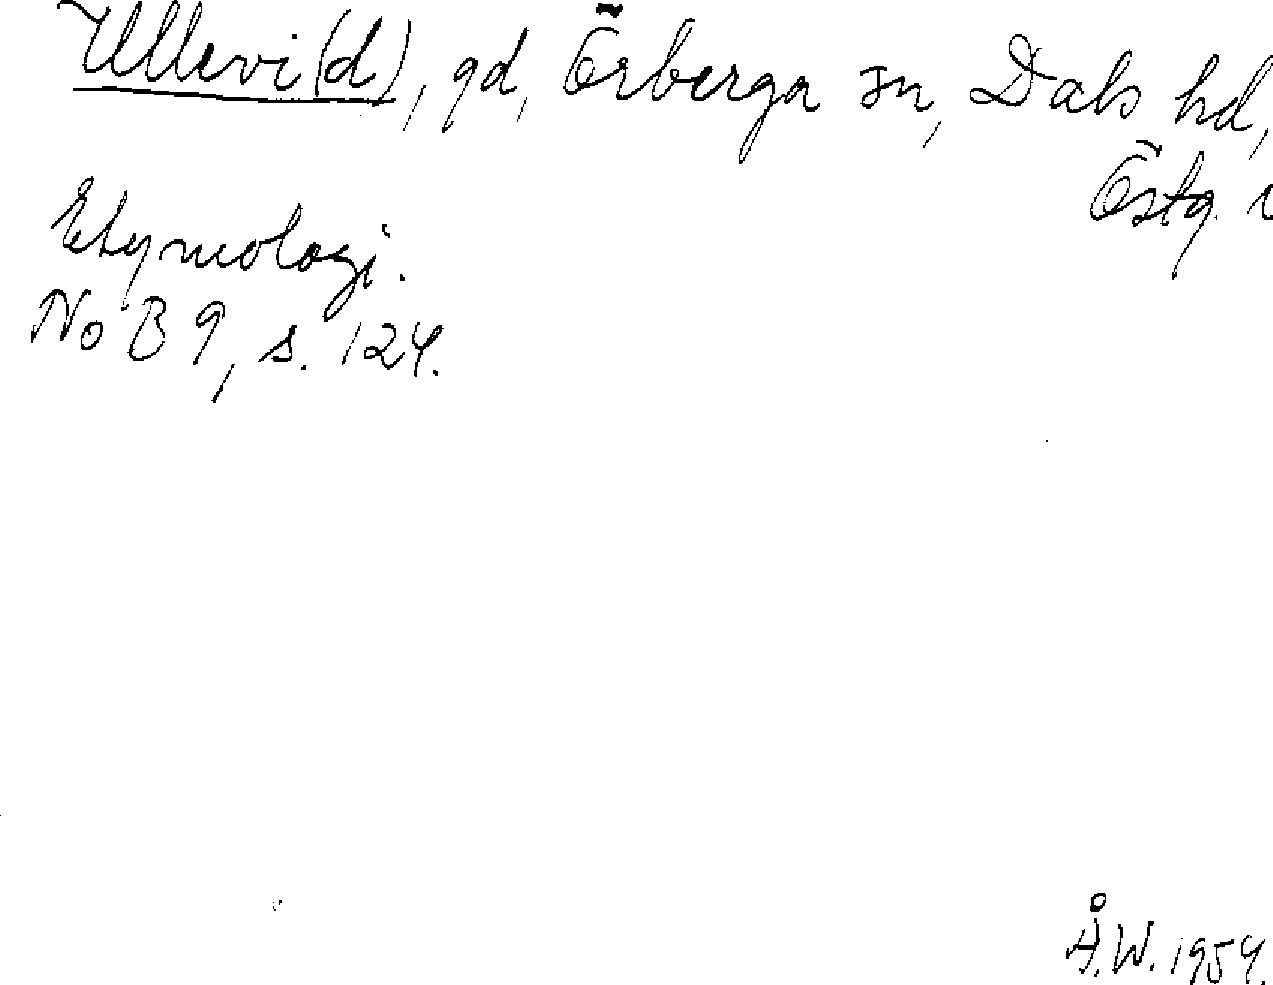 Ullevi(d), gd, Örberga sn, Dals hd,
Östg.
Etymologi.
NoB 9, s. 124.
Å.W. 1954.